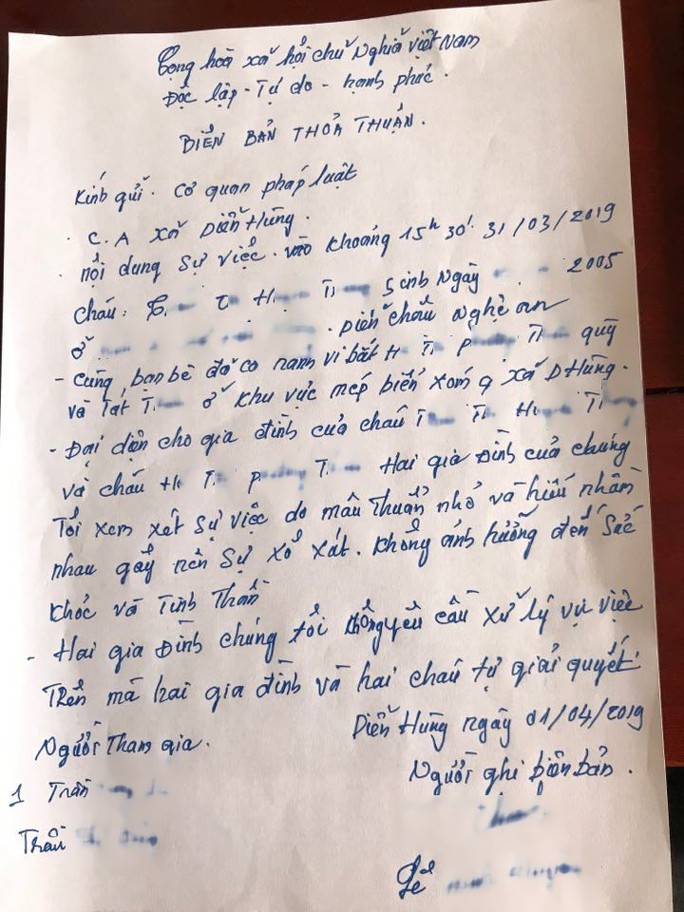 Cộng hoà xã hội chủ nghĩa việt Nam
Độc lập - Tự do - hạnh phúc.
BIÊN BẢN THOẢ THUẬN.
Kính gửi. Cơ quan pháp luật
C.A xã Diễn Hùng.
. nội dung sự việc. vào khoảng 15h 30' 31/03/2019
cháu: H T sinh Ngày 2005
ở Diễn Châu Nghệ an
- Cùng bạn bè đã có hành vi bắt H T P T quỳ
và Tát T ở khu vực mép biển xóm 9 xã D Hùng.
- Đại diện cho gia đình của cháu T T H T
và cháu H T P T Hai gia Đình của chúng
Tôi xem xét sự việc do mâu Thuẩn nhỏ và hiểu nhầm
nhau gây nên sự xô xát. không ảnh hưởng đến sức
khỏe và Tinh Thần
- Hai gia Đình chúng tôi không yêu cầu xử lý vụ việc
Trên mà hai gia đình và hai cháu tự giải quyết.
Diễn Hùng ngày 01/04/2019
Người Tham gia.
Người ghi biên bản.
1 Trần
Trần
Lê